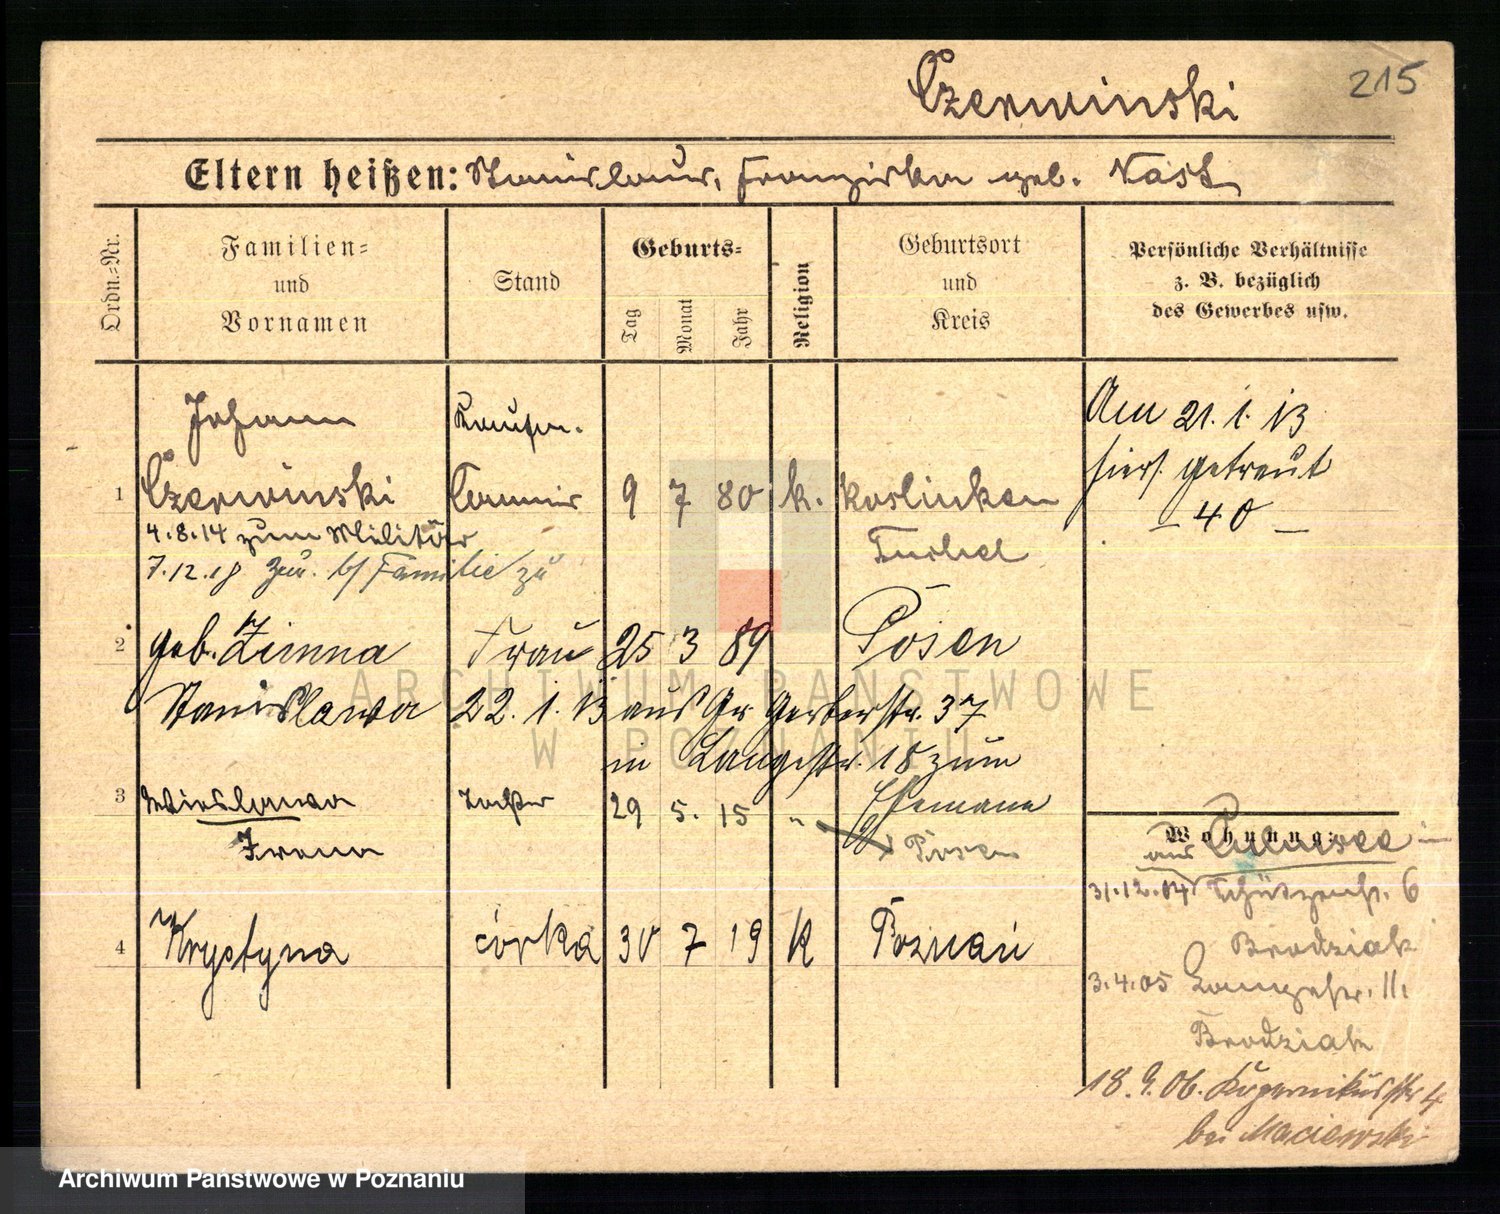 215
Czerwinski
Eltern heißen: Stanislaus, Franziska geb. Nast
Ordn.=Nr.
Familien=
und
Vornamen
Stand
Geburts=
Tag
Monat
Jahr
Religion
Geburtsort
und
Kreis
Persönliche Verhältnisse
z. B. bezüglich
des Gewerbes usw.
Johann
Kaufm.
Am 21. 1. 13
hiers. getraut
— 40 —
1 Czerwinski Commis 9 7 80 k. Koslinken
Tuchel
4.8.14 zum Militär
7.12.18 zur. b/ Familie zu
2 geb. Zimna Frau 25 3 89 Posen
Stanislawa 22. 1. 13 aus Gr. Gerberstr. 37
in Langestr. 18 zum
Ehemann
3 Wieslawa Tochter 29 5. 15 "
Irena Posen
4 Krystyna córka 30 7 19 k Poznań
Wohnung:
aus
31.12.04 Schützenstr. 6
Brodziak
3.4.05 Langestr. 11.
Brodziak
18.9.06. Kopernikusstr 4
bei Maciewski
ARCHIWUM PAŃSTWOWE
W POZNANIU
Archiwum Państwowe w Poznaniu